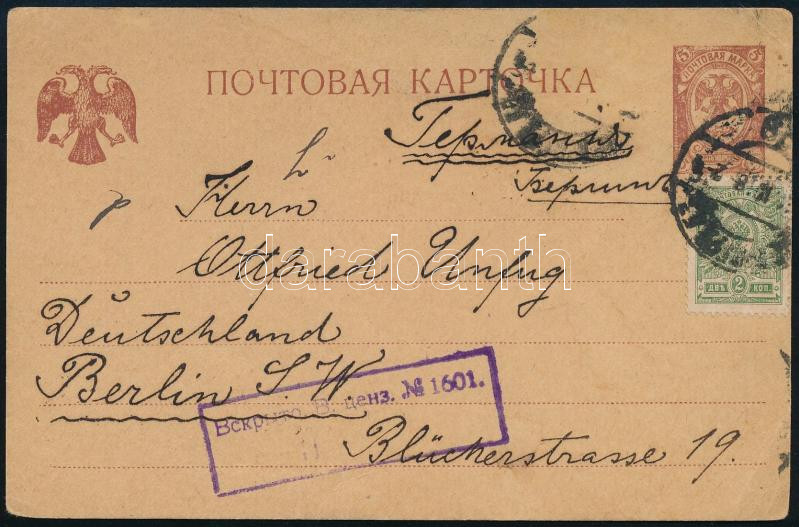 ПОЧТОВАЯ КАРТОЧКА
5 5
ПОЧТОВАЯ МАРКА
Германия
Берлинъ
Herrn
Ottfried Unfug
Deutschland
Berlin S.W.
Blücherstrasse 19.
Вскрыто В. ценз. № 1601.
ДВѢ 2 КОП.
darabanth